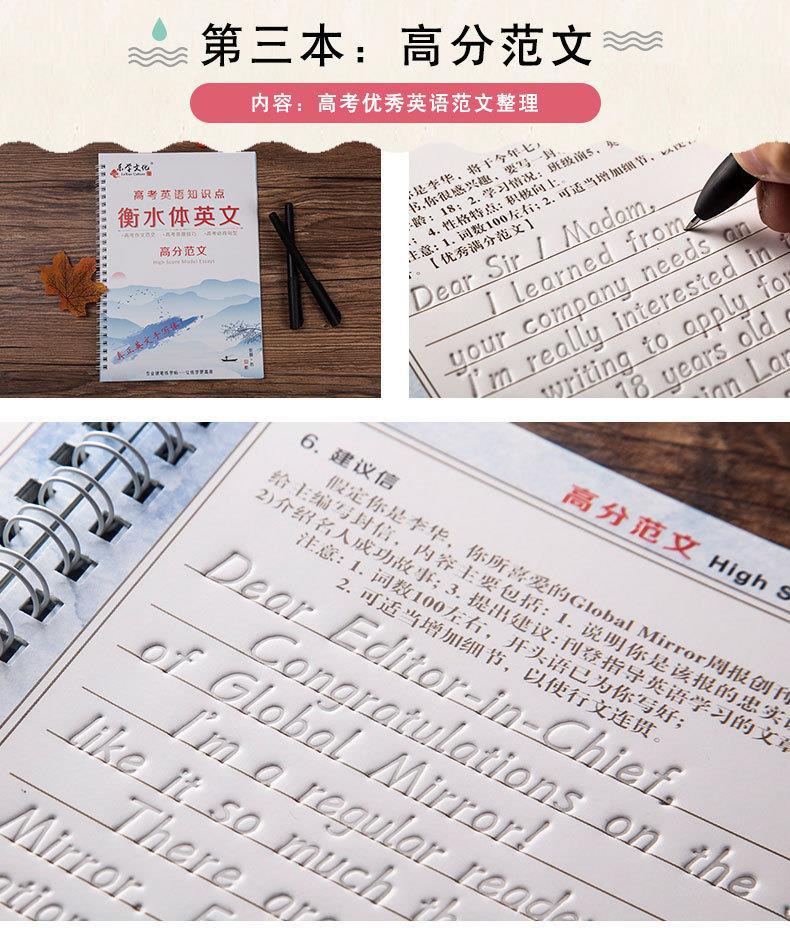 第三本：高分范文
内容：高考优秀英语范文整理
乐学文化
高考英语知识点
衡水体英文
高分范文
High Score Model Essays
真正英文手写体
是李华，将于今年七
书,你很感兴趣，要写一封
龄：18；2. 学习情况：班级前5，英
；4. 性格特点：积极向上。
注意：1. 词数100左右；2. 可适当增加细节，以使行
。【优秀满分范文】
Dear Sir / Madam,
I learned from
your company needs an
I'm really interested in
writing to apply for
18 years old
6. 建议信
高分范文 High S
假定你是李华，你所喜爱的Global Mirror周报创刊
给主编写封信，内容主要包括：1. 说明你是该报的忠实
2)介绍名人成功故事；3, 提出建议:刊登指导英语学习的文章
注意：1. 词数100左右，开头语已为你写好；
2. 可适当增加细节，以使行文连贯。
Dear Editor-in-Chief,
Congratulations on the
of Global Mirror!
I'm a regular reader
like it so much th
There are
Mirror.